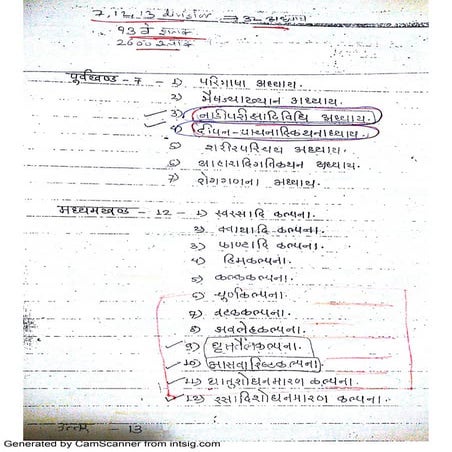 7, 12, 13 division → 32 અધ્યાય
૧૩ વે શતક
2600 શ્લોક
પૂર્વખણ્ડ - 7 - ૧) પરિભાષા અધ્યાય.
૨) ભૈષજ્યાખ્યાન અધ્યાય.
૩) નાડીપરીક્ષાદિવિધિ અધ્યાય.
૪) દીપન-પાચનાદિકથનાધ્યાય.
૫) શારીરપરિચય અધ્યાય.
૬) આહારાદિગતિકથન અધ્યાય.
૭) રોગગણના અધ્યાય.
મધ્યમખણ્ડ - 12 - ૧) સ્વરસાદિ કલ્પના.
૨) ક્વાથાદિ કલ્પના.
૩) ફાણ્ટાદિ કલ્પના.
૪) હિમકલ્પના.
૫) કલ્કકલ્પના.
૬) ચૂર્ણકલ્પના.
૭) વટકકલ્પના.
૮) અવલેહકલ્પના.
૯) ઘૃતતૈલકલ્પના.
૧૦) આસવારિષ્ટકલ્પના.
૧૧) ધાતુશોધનમારણ કલ્પના.
૧૨) રસાદિશોધનમારણ કલ્પના.
- 13
Generated by CamScanner from intsig.com